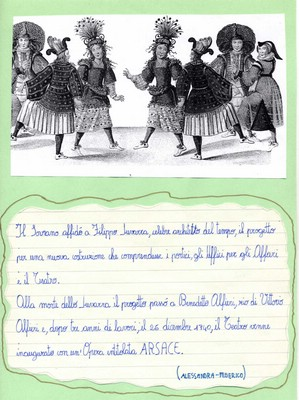 Il Sovrano affidò a Filippo Juvarra, celebre architetto del tempo, il progetto
per una nuova costruzione che comprendesse i portici, gli Uffici per gli Affari
e il Teatro.
Alla morte dello Juvarra il progetto passò a Benedetto Alfieri, zio di Vittorio
Alfieri e, dopo tre anni di lavori, il 26 dicembre 1740, il Teatro venne
inaugurato con un'Opera intitolata ARSACE.
(ALESSANDRA - FEDERICO)